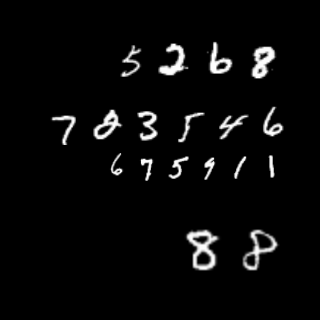 5268
783546
675911
88